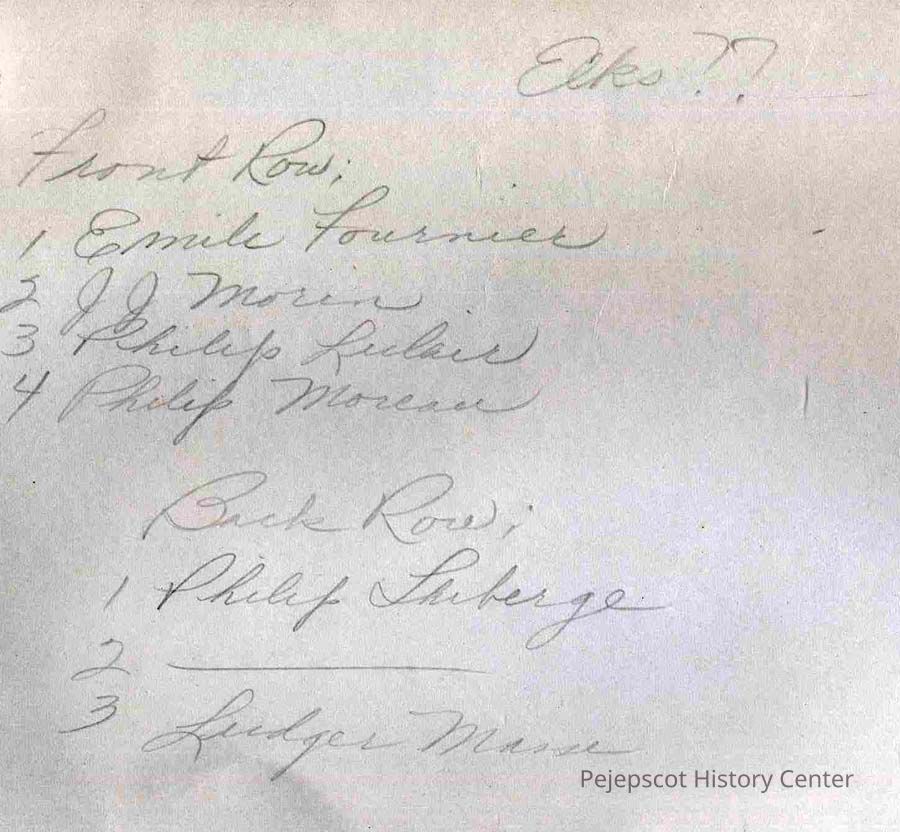 Elks ??
Front Row;
1 Emile Fournier
2 J J Morin
3 Philip Lulair
4 Philip Moreau
Back Row;
1 Philip Thiberge
2 ———
3 Ludger Masse
Pejepscot History Center